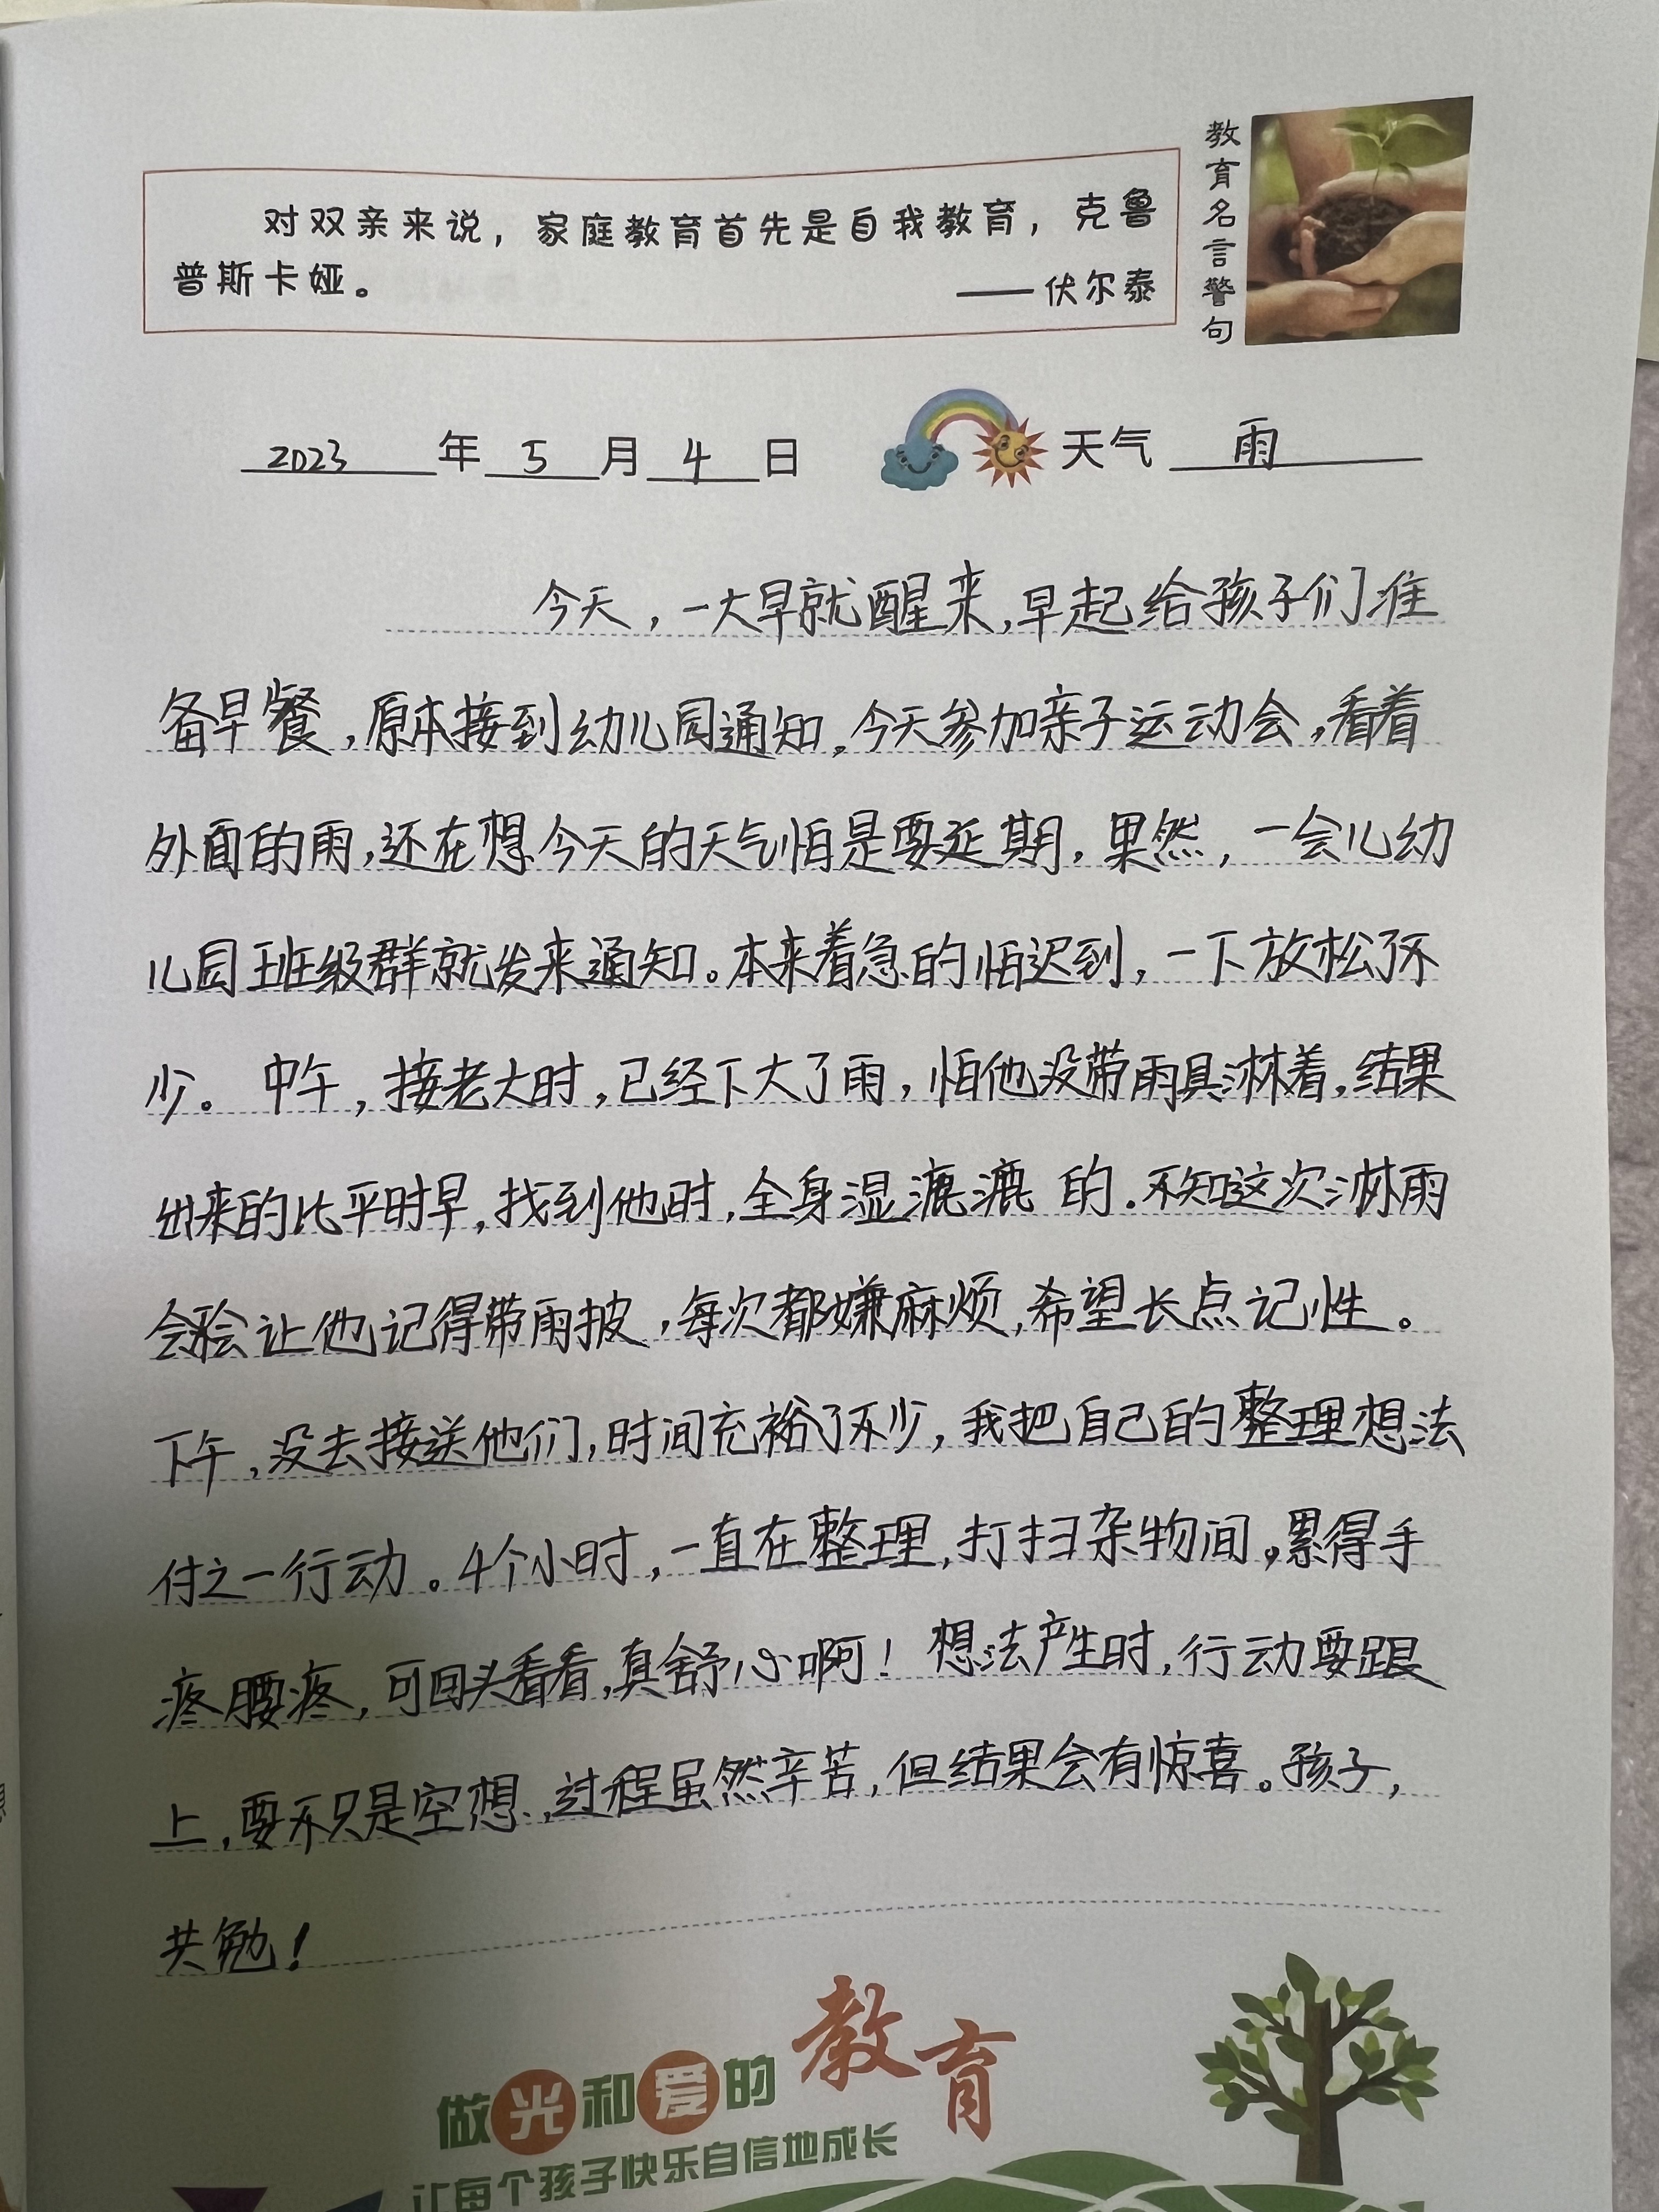 对双亲来说，家庭教育首先是自我教育，克鲁
普斯卡娅。
——伏尔泰
教育名言警句
2023年5月4日 天气 雨
今天，一大早就醒来，早起给孩子们准
备早餐，原本接到幼儿园通知，今天参加亲子运动会，看着
外面的雨，还在想今天的天气怕是要延期，果然，一会儿幼
儿园班级群就发来通知。本来着急的怕迟到，一下放松了不
少。中午，接老大时，已经下大了雨，怕他没带雨具淋着，结果
出来的比平时早，找到他时，全身湿漉漉的．不知这次淋雨
会让他记得带雨披，每次都嫌麻烦，希望长点记性。
下午，没去接送他们，时间充裕了不少，我把自己的整理想法
付之一行动。4个小时，一直在整理，打扫杂物间，累得手
疼腰疼，可回头看看，真舒心啊！想法产生时，行动要跟
上，要不只是空想，过程虽然辛苦，但结果会有惊喜。孩子，
共勉！
做光和爱的教育
让每个孩子快乐自信地成长